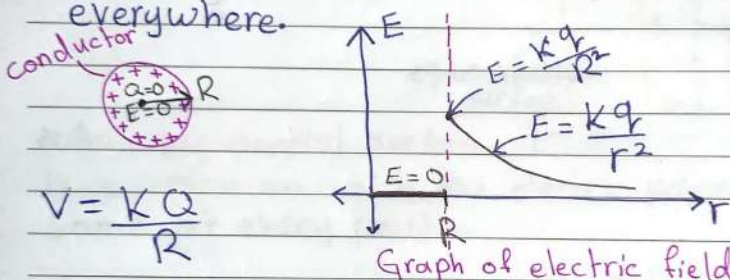 everywhere.
conductor
+ + + + + + + + + + + +
Q=0
E=0
R
V = KQ/R
E
E = Kq/R²
E = Kq/r²
E = 0
R
r
Graph of electric field